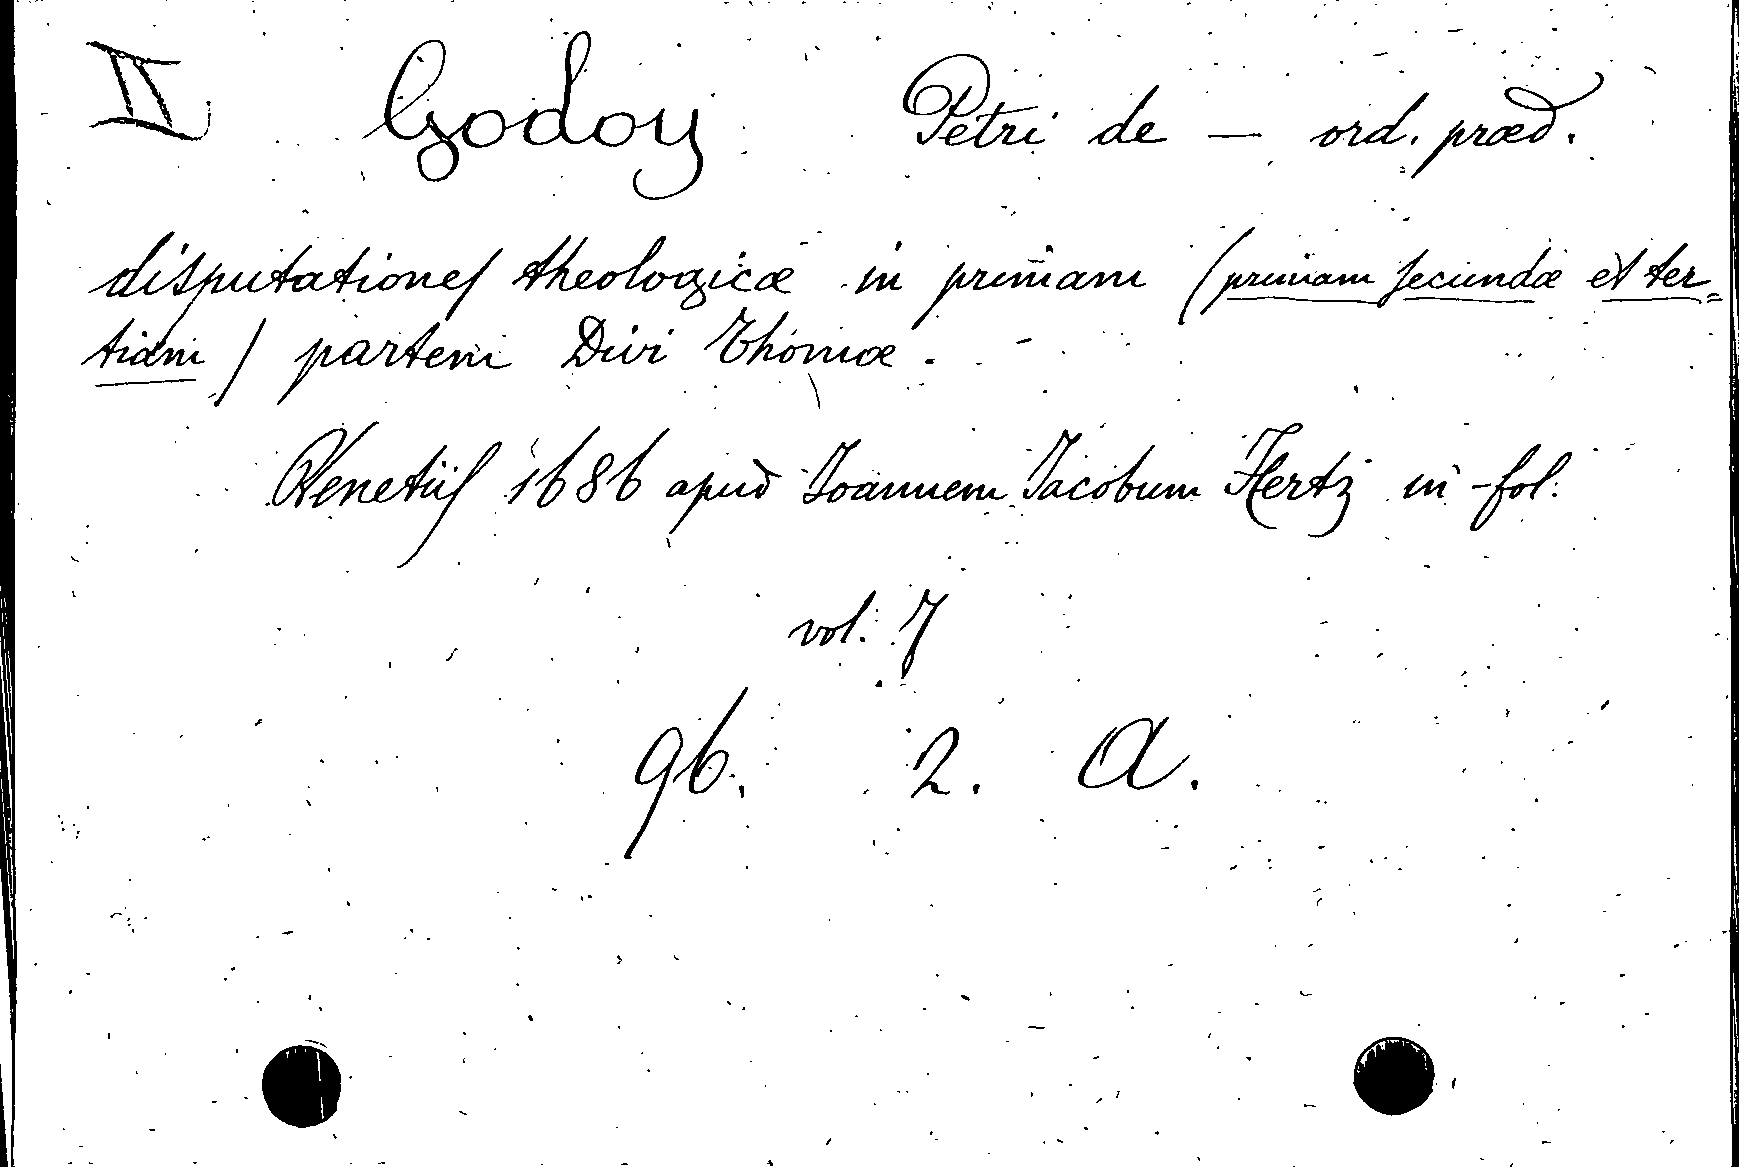 II Godoy Petri de — ord. præd.
disputationes theologicæ in primam (primam secundæ et ter=
tiam) partem Divi Thomæ.
Venetiis 1686 apud Joannem Jacobum Hertz in-fol:
vol: 7
96. 2. A.